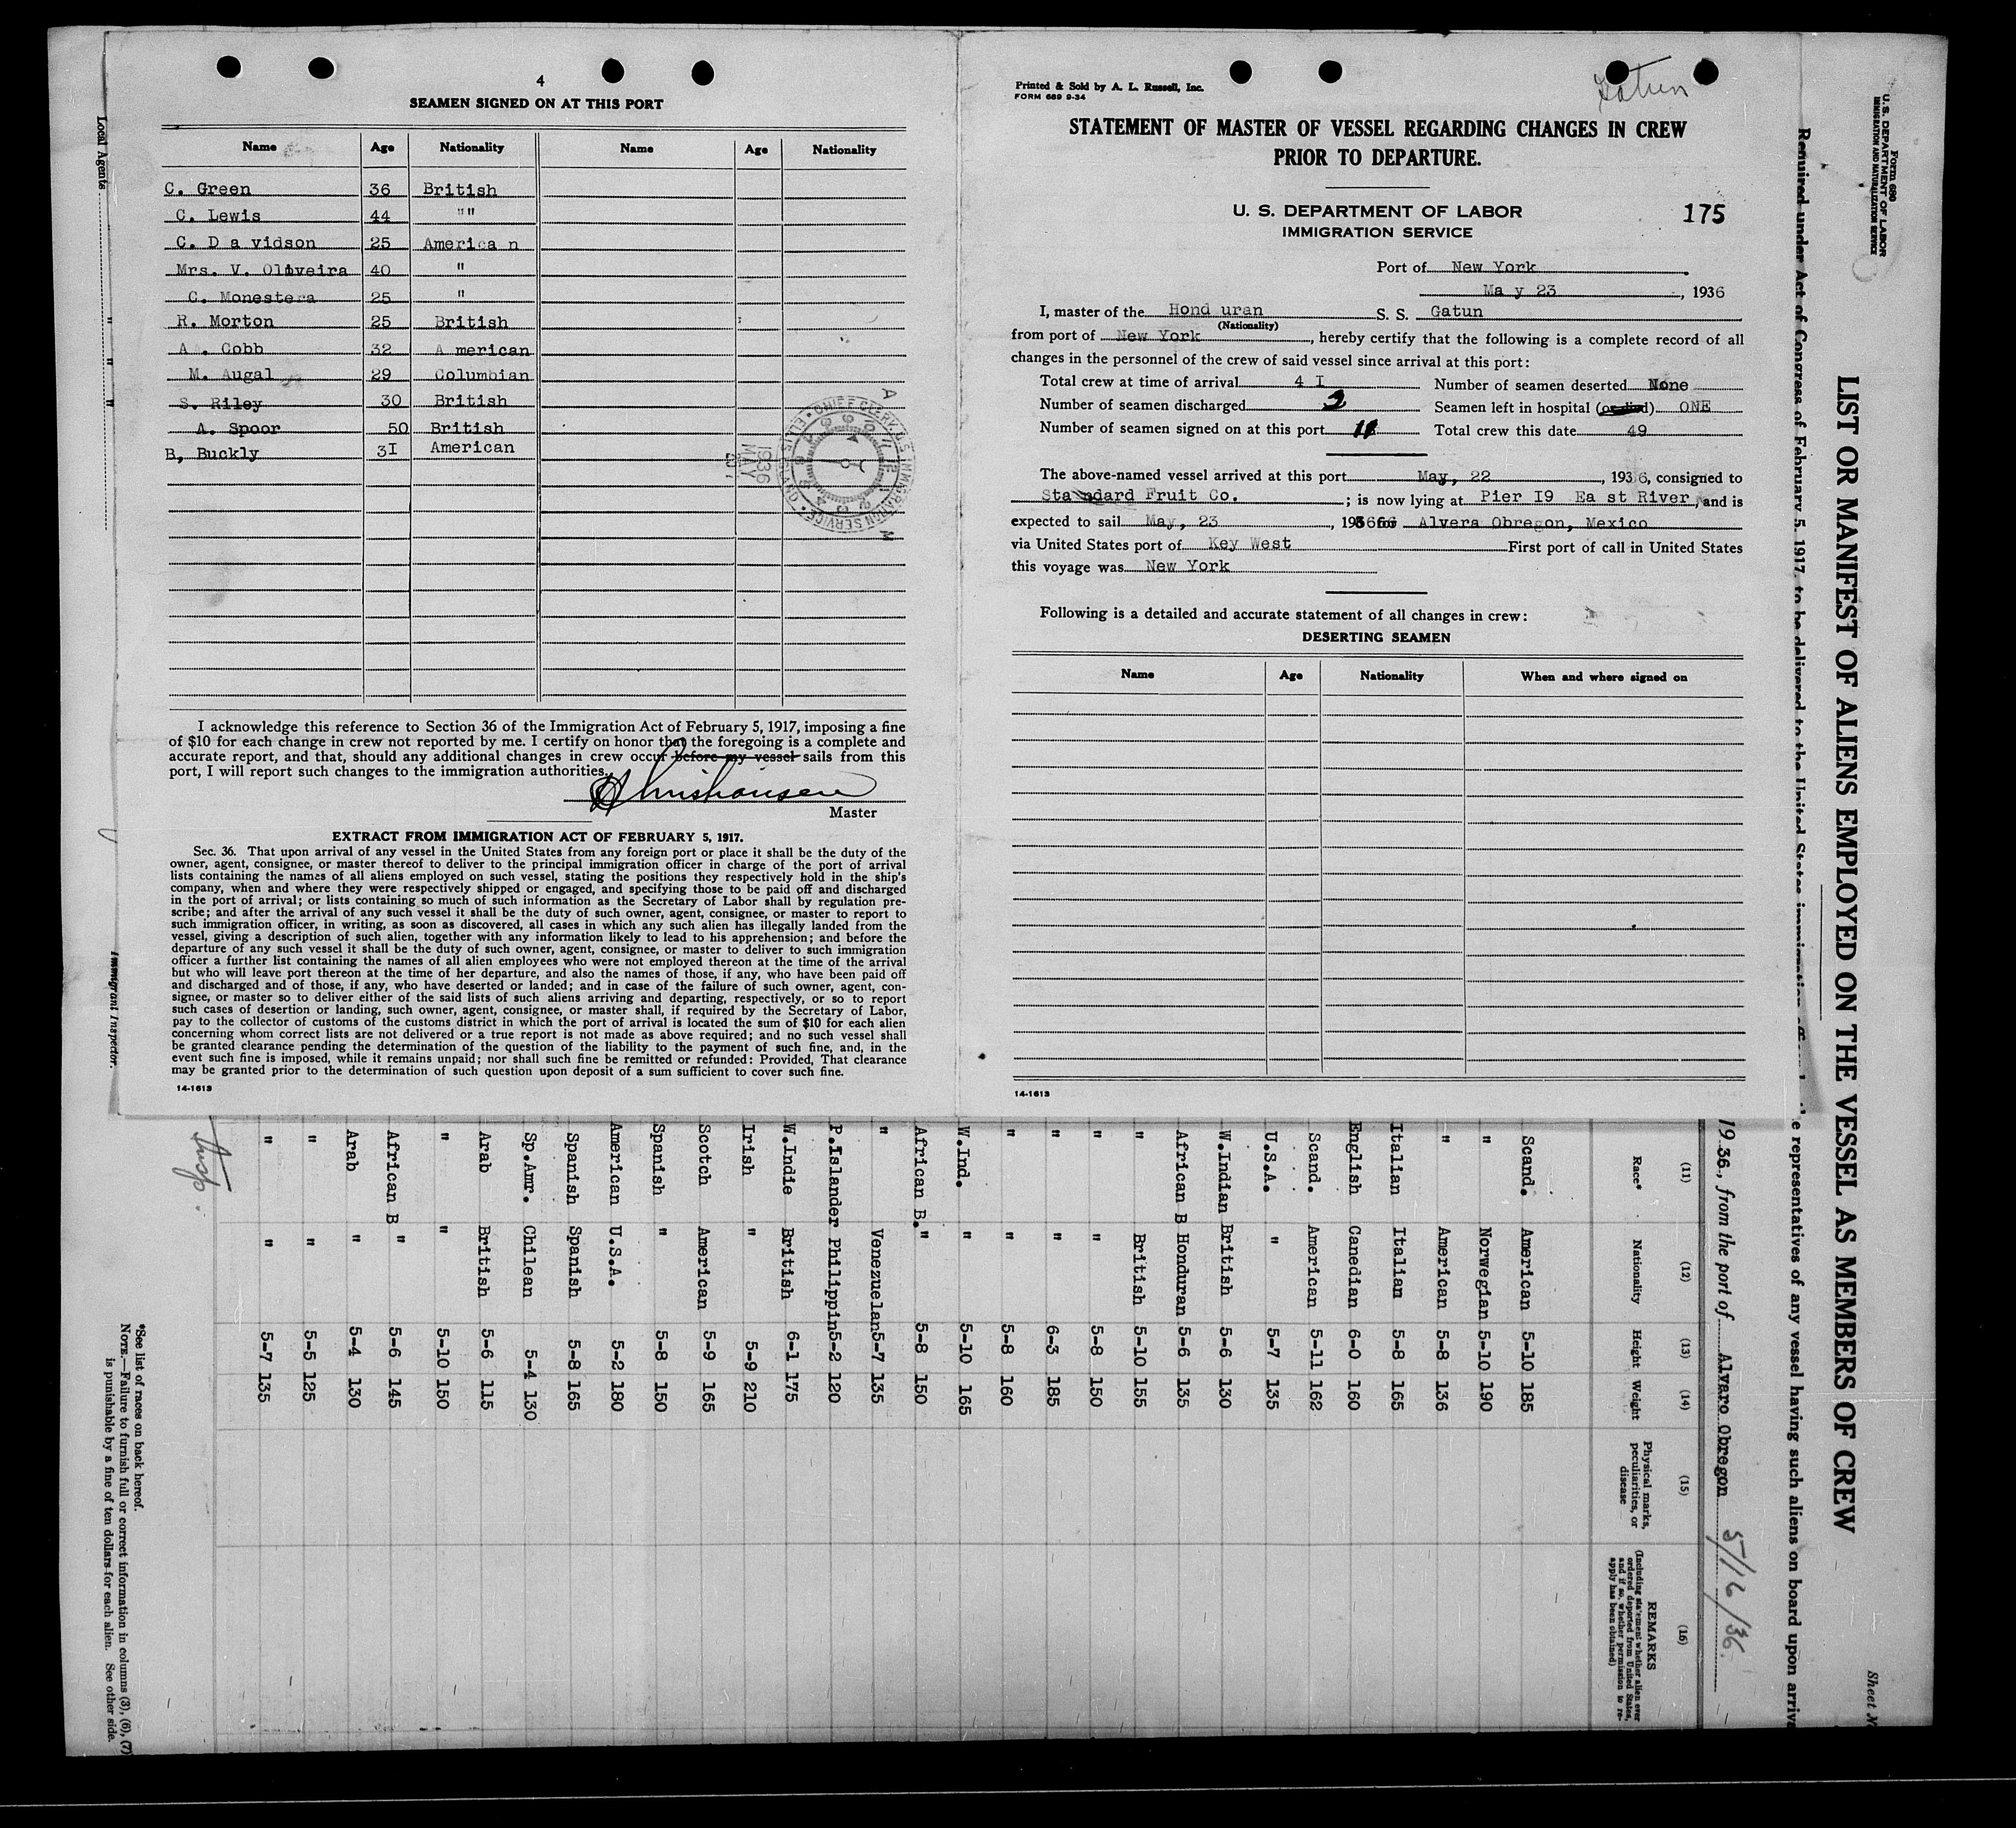 4
SEAMEN SIGNED ON AT THIS PORT
Name Age Nationality Name Age Nationality
C. Green 36 British
C. Lewis 44 """
C. D a vidson 25 America n
Mrs. V. Oliveira 40 "
C. Monestera 25 "
R. Morton 25 British
A . Cobb 32 A merican
M. Augal 29 Columbian
S. Riley 30 British
A. Spoor 50 British
B, Buckly 3I American
I acknowledge this reference to Section 36 of the Immigration Act of February 5, 1917, imposing a fine
of $10 for each change in crew not reported by me. I certify on honor that the foregoing is a complete and
accurate report, and that, should any additional changes in crew occur before my vessel sails from this
port, I will report such changes to the immigration authorities.
Master
EXTRACT FROM IMMIGRATION ACT OF FEBRUARY 5, 1917.
Sec. 36. That upon arrival of any vessel in the United States from any foreign port or place it shall be the duty of the
owner, agent, consignee, or master thereof to deliver to the principal immigration officer in charge of the port of arrival
lists containing the names of all aliens employed on such vessel, stating the positions they respectively hold in the ship's
company, when and where they were respectively shipped or engaged, and specifying those to be paid off and discharged
in the port of arrival; or lists containing so much of such information as the Secretary of Labor shall by regulation pre-
scribe; and after the arrival of any such vessel it shall be the duty of such owner, agent, consignee, or master to report to
such immigration officer, in writing, as soon as discovered, all cases in which any such alien has illegally landed from the
vessel, giving a description of such alien, together with any information likely to lead to his apprehension; and before the
departure of any such vessel it shall be the duty of such owner, agent, consignee, or master to deliver to such immigration
officer a further list containing the names of all alien employees who were not employed thereon at the time of the arrival
but who will leave port thereon at the time of her departure, and also the names of those, if any, who have been paid off
and discharged and of those, if any, who have deserted or landed; and in case of the failure of such owner, agent, con-
signee, or master so to deliver either of the said lists of such aliens arriving and departing, respectively, or so to report
such cases of desertion or landing, such owner, agent, consignee, or master shall, if required by the Secretary of Labor,
pay to the collector of customs of the customs district in which the port of arrival is located the sum of $10 for each alien
concerning whom correct lists are not delivered or a true report is not made as above required; and no such vessel shall
be granted clearance pending the determination of the question of the liability to the payment of such fine, and, in the
event such fine is imposed, while it remains unpaid; nor shall such fine be remitted or refunded: Provided, That clearance
may be granted prior to the determination of such question upon deposit of a sum sufficient to cover such fine.
14-1613
Printed & Sold by A. L. Russell, Inc.
FORM 689 9-34
Gatun
STATEMENT OF MASTER OF VESSEL REGARDING CHANGES IN CREW
PRIOR TO DEPARTURE.
U. S. DEPARTMENT OF LABOR
IMMIGRATION SERVICE
175
Port of New York
Ma y 23, 1936
I, master of the Hond uran S. S. Gatun
(Nationality)
from port of New York, hereby certify that the following is a complete record of all
changes in the personnel of the crew of said vessel since arrival at this port:
Total crew at time of arrival 4 I Number of seamen deserted None
Number of seamen discharged 2 Seamen left in hospital (or died) ONE
Number of seamen signed on at this port 11 Total crew this date 49
The above-named vessel arrived at this port May, 22, 1936, consigned to
Standard Fruit Co.; is now lying at Pier I9 Ea st River, and is
expected to sail May, 23, 1936 for Alvera Obregon, Mexico
via United States port of Key West First port of call in United States
this voyage was New York
Following is a detailed and accurate statement of all changes in crew:
DESERTING SEAMEN
Name Age Nationality When and where signed on
14-1613
Form 680
U. S. DEPARTMENT OF LABOR
IMMIGRATION AND NATURALIZATION SERVICE
Sheet N
LIST OR MANIFEST OF ALIENS EMPLOYED ON THE VESSEL AS MEMBERS OF CREW
Required under Act of Congress of February 5, 1917, to be delivered to the United States immigration representatives of any vessel having such aliens on board upon arriva
1936, from the port of Alvaro Obregon 5/16/36
(11) (12) (13) (14) (15) (16)
Race* Nationality Height Weight Physical marks, peculiarities, or disease REMARKS
(Including statement whether alien ever ordered deported from United States, and if so, whether permission to re-apply has been obtained)
Scand. American 5-10 185
" Norwegian 5-10 190
" American 5-8 136
Italian Italian 5-8 165
English Canedian 6-0 160
Scand. American 5-11 162
U.S.A. " 5-7 135
W.Indian British 5-6 130
African B Honduran 5-6 135
" British 5-10 155
" " 5-8 150
" " 6-3 185
" " 5-8 160
W.Ind. " 5-10 165
African B. " 5-8 150
" Venezuelan 5-7 135
P.Islander Philippin 5-2 120
W.Indie British 6-1 175
Irish " 5-9 210
Scotch American 5-9 165
Spanish " 5-8 150
American U.S.A. 5-2 180
Spanish Spanish 5-8 165
Sp.Amr. Chilean 5-4 130
Arab British 5-6 115
" " 5-10 150
African B " 5-6 145
Arab " 5-4 130
" " 5-5 125
" " 5-7 135
*See list of races on back hereof.
NOTE.—Failure to furnish full or correct information in columns (3), (6), (7)
is punishable by a fine of ten dollars for each alien. See other side.
Local Agents
" " "
Immigrant Inspector.
CHIEF CLERK U.S. IMMIGRATION SERVICE ELLIS ISLAND
1936 MAY